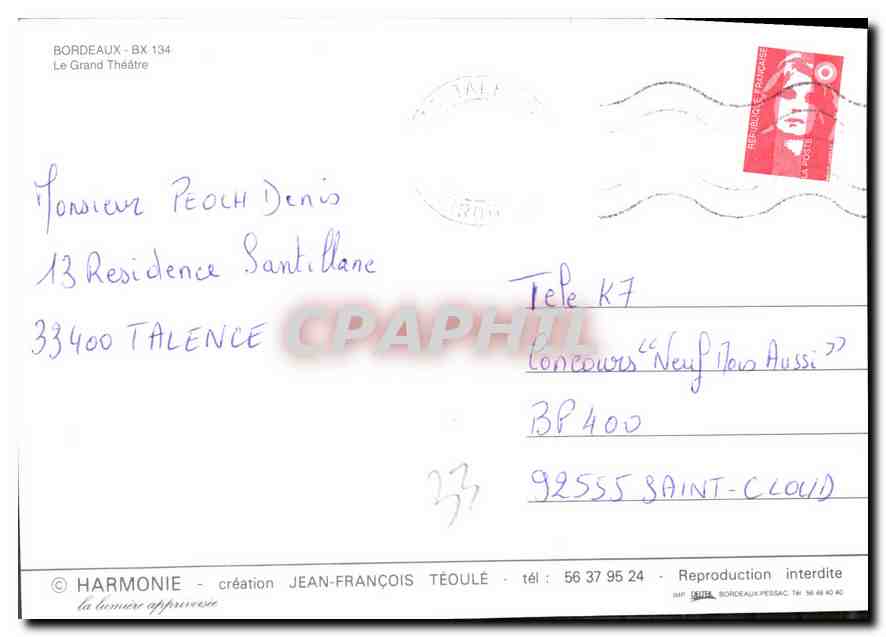 BORDEAUX - BX 134
Le Grand Théâtre
TALE
RÉPUBLIQUE FRANÇAISE
LA POSTE
Monsieur PEOCH Denis
13 Residence Santillane
33400 TALENCE
CPAPHIL
Tele K7
Concours "Neuf Mois Aussi"
BP 400
92555 SAINT-CLOUD
33
© HARMONIE - création JEAN-FRANÇOIS TÉOULÉ - tél : 56 37 95 24 - Reproduction interdite
la lumière apprivoisée
IMP. DELTEIL BORDEAUX-PESSAC. Tél. 56 46 40 40